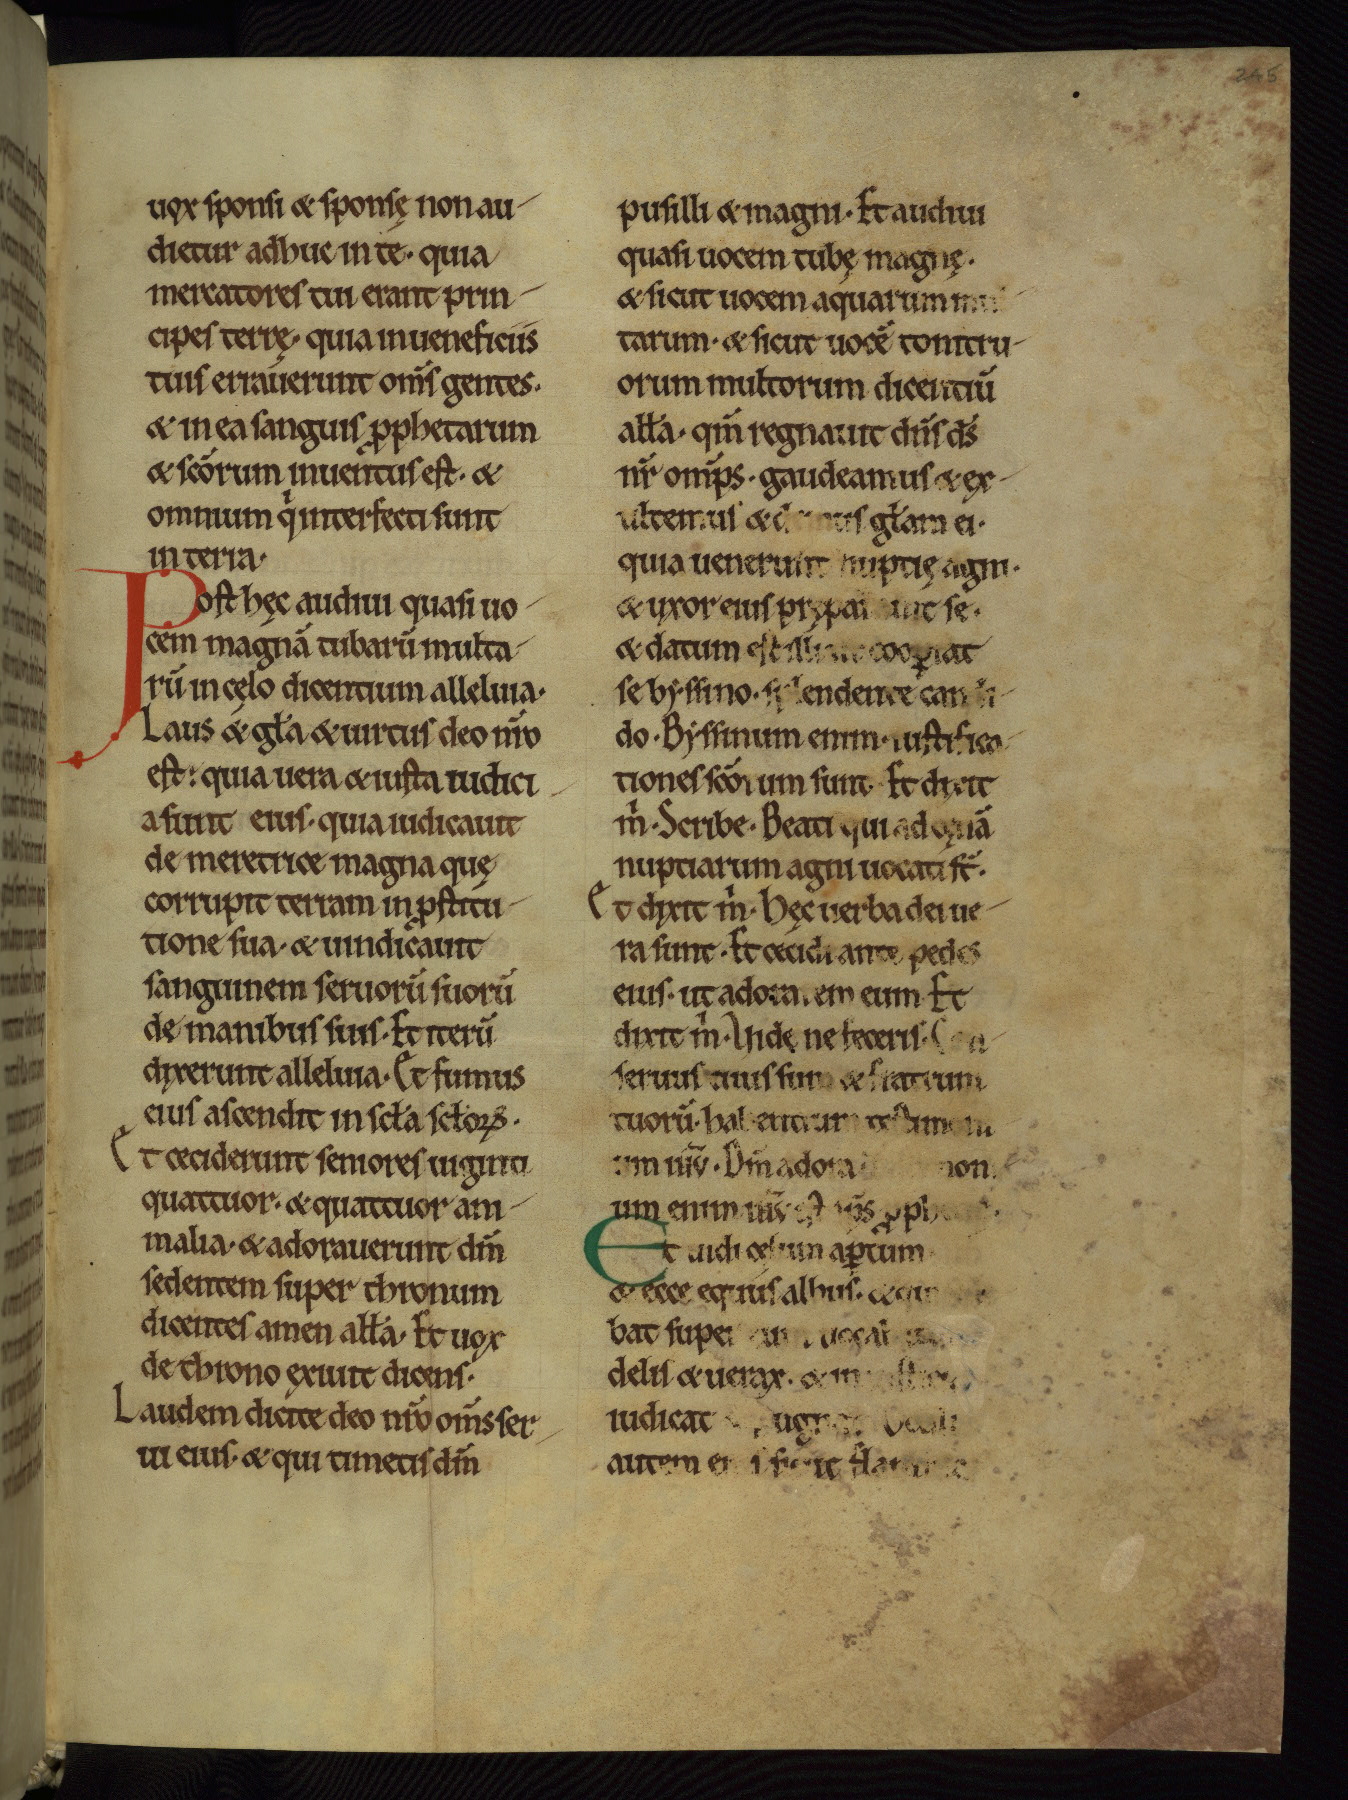 245
uox sponsi & sponsę non au-
dietur adhuc in te· quia
mercatores tui erant prin-
cipes terrę· quia in ueneficiis
tuis errauerunt om̅s gentes·
& in ea sanguis ꝓphetarum
& sc̅orum inuentus est· &
omnium qͥ interfecti sunt
in terra·
Post hęc audiui quasi uo-
cem magnā tubarū multa-
rū in cęlo dicentium alleluia·
Laus & gła & uirtus deo nr̅o
est· quia uera & iusta iudici-
a sunt eius· quia iudicauit
de meretrice magna quę
corrupit terram in ꝓstitu-
tione sua· & uindicauit
sanguinem seruorū suorū
de manibus suis· Et iterū
dixerunt alleluia· Et fumus
eius ascendit in scła scłoꝝ·
Et ceciderunt seniores uiginti
quattuor· & quattuor ani-
malia· & adorauerunt dm̅
sedentem super thronum
dicentes amen ałła· Et uox
de throno exiuit dicens·
Laudem dicite deo nr̅o om̅s ser-
ui eius· & qui timetis dm̅
pusilli & magni· Et audiui
quasi uocem tubę magnę·
& sicut uocem aquarum mul-
tarum· & sicut uocē tonitru-
orum multorum dicentiū
ałła· qm̅ regnauit dn̅s ds̅
nr̅ omp̅s· gaudeamus & ex-
ultemus & demus głam ei·
quia uenerunt nuptię agni·
& uxor eius pręparauit se·
& datum est illi ut cooꝑiat
se byssino· splendente candi-
do· Byssinum enim· iustifica-
tiones sc̅orum sunt· Et dixit
mͥ· Scribe· Beati qui ad cęnā
nuptiarum agni uocati st̅·
Et dixit mͥ· hęc uerba dei ue-
ra sunt· Et cecidi ante pedes
eius· ut adorarem eum· Et
dixit mͥ· Vide ne feceris· Con-
seruus tuus sum & fratrum
tuorū· habentium testimoni-
um· Dm̅ adora
um enim est
Et uidi cęlum aꝑtum
& ecce equus albus· & qui
bat super
delis & uerax· &
iudicat
autem sicut